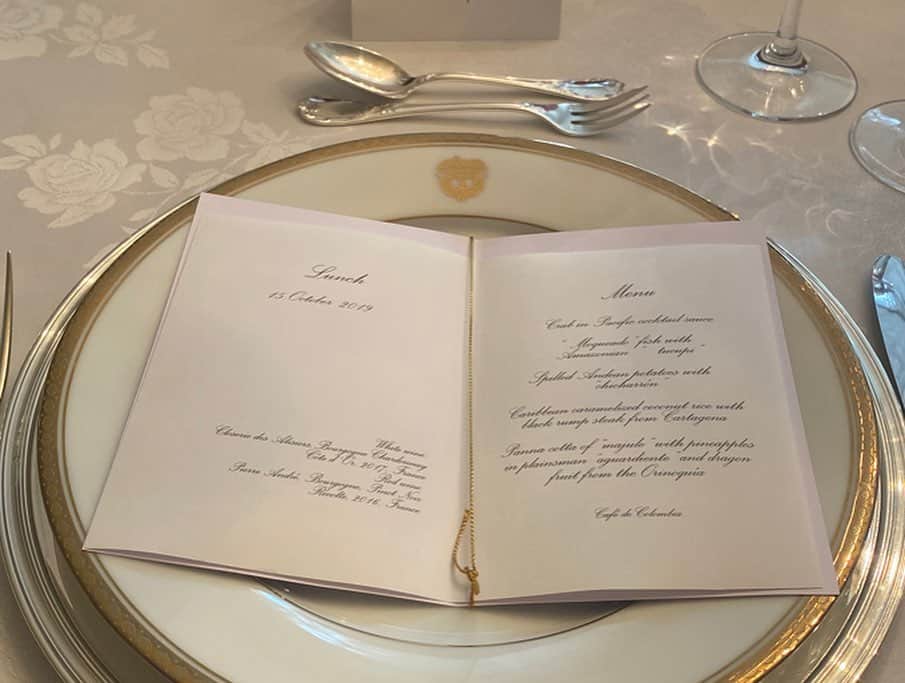 Lunch
15 October 2019
White wine
Closerie des Alisiers, Bourgogne Chardonnay
Côte d'Or, 2017, France
Red wine
Pierre André, Bourgogne, Pinot Noir
Récolte, 2016, France
Menu
Crab in Pacific cocktail sauce
"Moqueado" fish with
Amazonian "tucupi"
Spilled Andean potatoes with
"chicharrón"
Caribbean caramelized coconut rice with
black rump steak from Cartagena
Panna cotta of "majule" with pineapples
in plainsman "aguardiente" and dragon
fruit from the Orinoquia
Café de Colombia